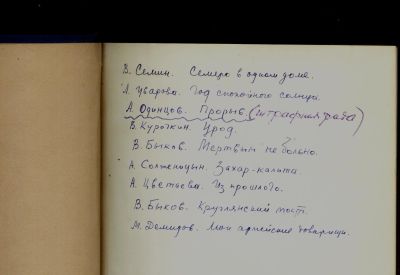 В. Семин. Семеро в одном доме.
Л. Уварова. Год спокойного солнца.
А. Одинцов. Прорыв. (штрафная рота)
В. Курочкин. Урод.
В. Быков. Мертвым не больно.
А. Солженицын. Захар-калита
А. Цветаева. Из прошлого.
В. Быков. Круглянский мост.
М. Демидов. Мои армейские товарищи.